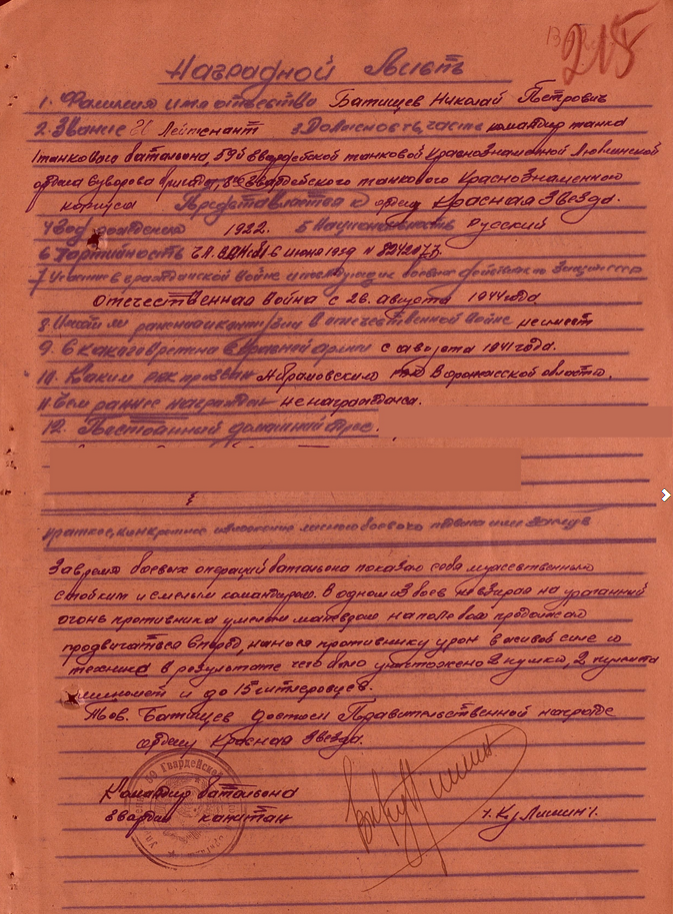 215
Наградной Листъ
1. Фамилия имя отчество Батищев Николай Петрович
2. Звание Гв Лейтенант 3. Должность, часть командир танка
1 танкового батальона, 59й Гвардейской танковой Краснознаменной Люблинской
ордена Суворова бригады, 8го Гвардейского танкового Краснознаменного
корпуса Представляется к ордену Красная Звезда.
4 Год рождения 1922. 5 Национальность Русский
6 Партийность июня 1939
7 Участие в гражданской войне и последующих боевых действиях по защите ссср
Отечественная война с 26. августа 1944 года
8. Имеет ли ранения и контузии в отечественной войне не имеет
9. С какого времени в Красной армии с августа 1941 года.
10. Каким рвк призван РВК Воронежской области.
11 Чем ранее награжден не награждался.
12. Постоянный домашний адрес.
Краткое, конкретное изложение личного боевого подвига или заслуг
За время боевых операций батальона показал себя мужественным
стойким и смелым командиром. В одном из боев не взирая на ураганный
огонь противника умелым маневром на поле боя продолжал
продвигаться вперед, нанося противнику урон в живой силе и
технике в результате чего было уничтожено 2 пушки, 2 пулемета
миномет и до 15 гитлеровцев.
Тов. Батищев достоин Правительственной награде
ордену Красная Звезда.
Командир батальона
гвардии капитан